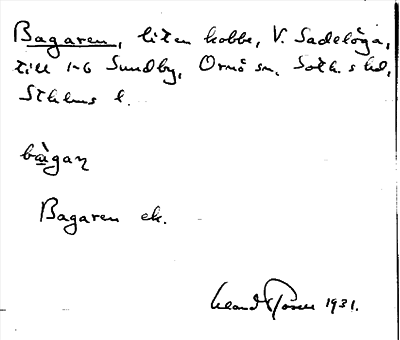 Bagaren, liten kobbe, V. Sadelöga,
till 1-6 Sundby, Ornö sn. Soth. s hd,
Sthlms l.
bàgaɳ
Bagaren ek.
1931.